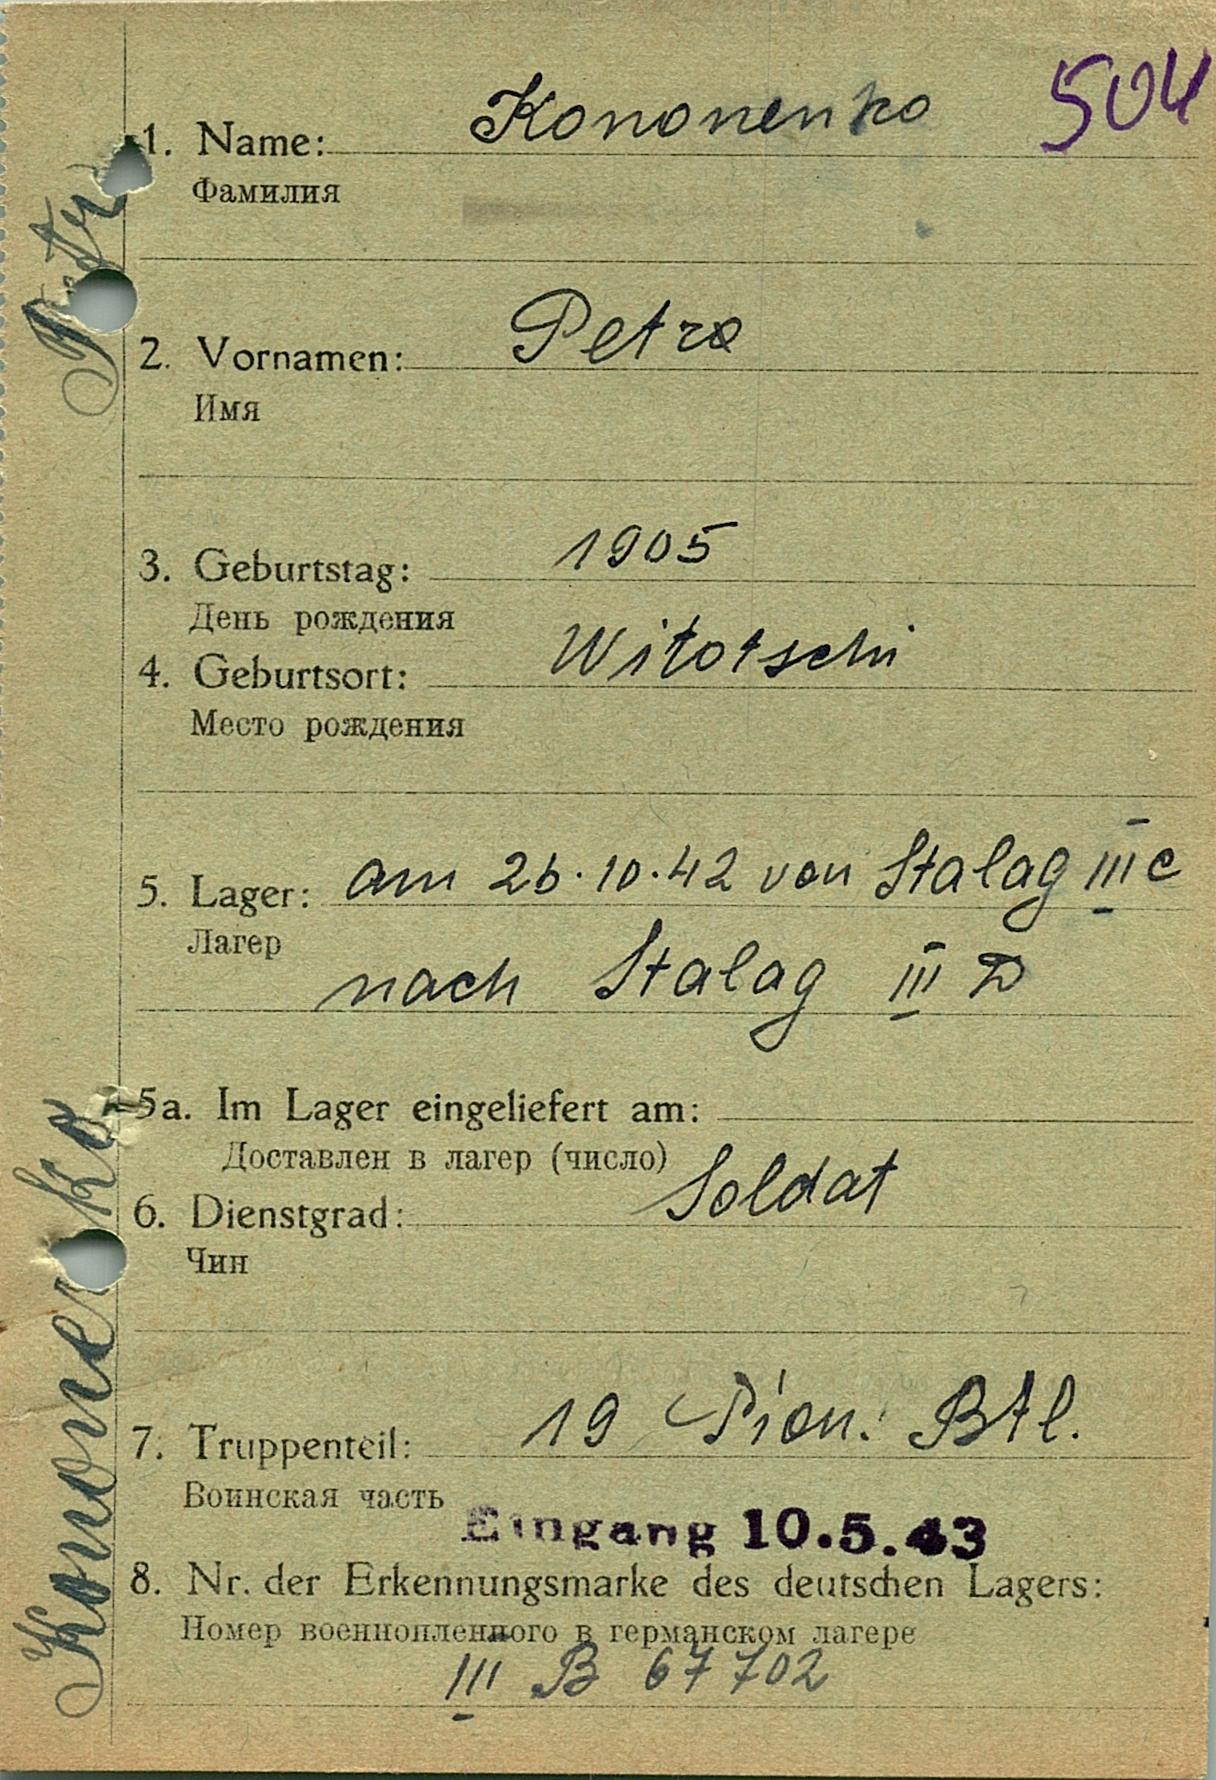 504
1. Name: Kononenko
Фамилия
2. Vornamen: Petro
Имя
3. Geburtstag: 1905
День рождения
4. Geburtsort: Witotschi
Место рождения
5. Lager: am 26.10.42 von Stalag III C
Лагер
nach Stalag III D
5a. Im Lager eingeliefert am:
Доставлен в лагер (число)
6. Dienstgrad: Soldat
Чин
7. Truppenteil: 19 Pion. Btl.
Воинская часть
Eingang 10.5.43
8. Nr. der Erkennungsmarke des deutschen Lagers:
Номер военнопленного в германском лагере
III B 67702
Kononenko Petro